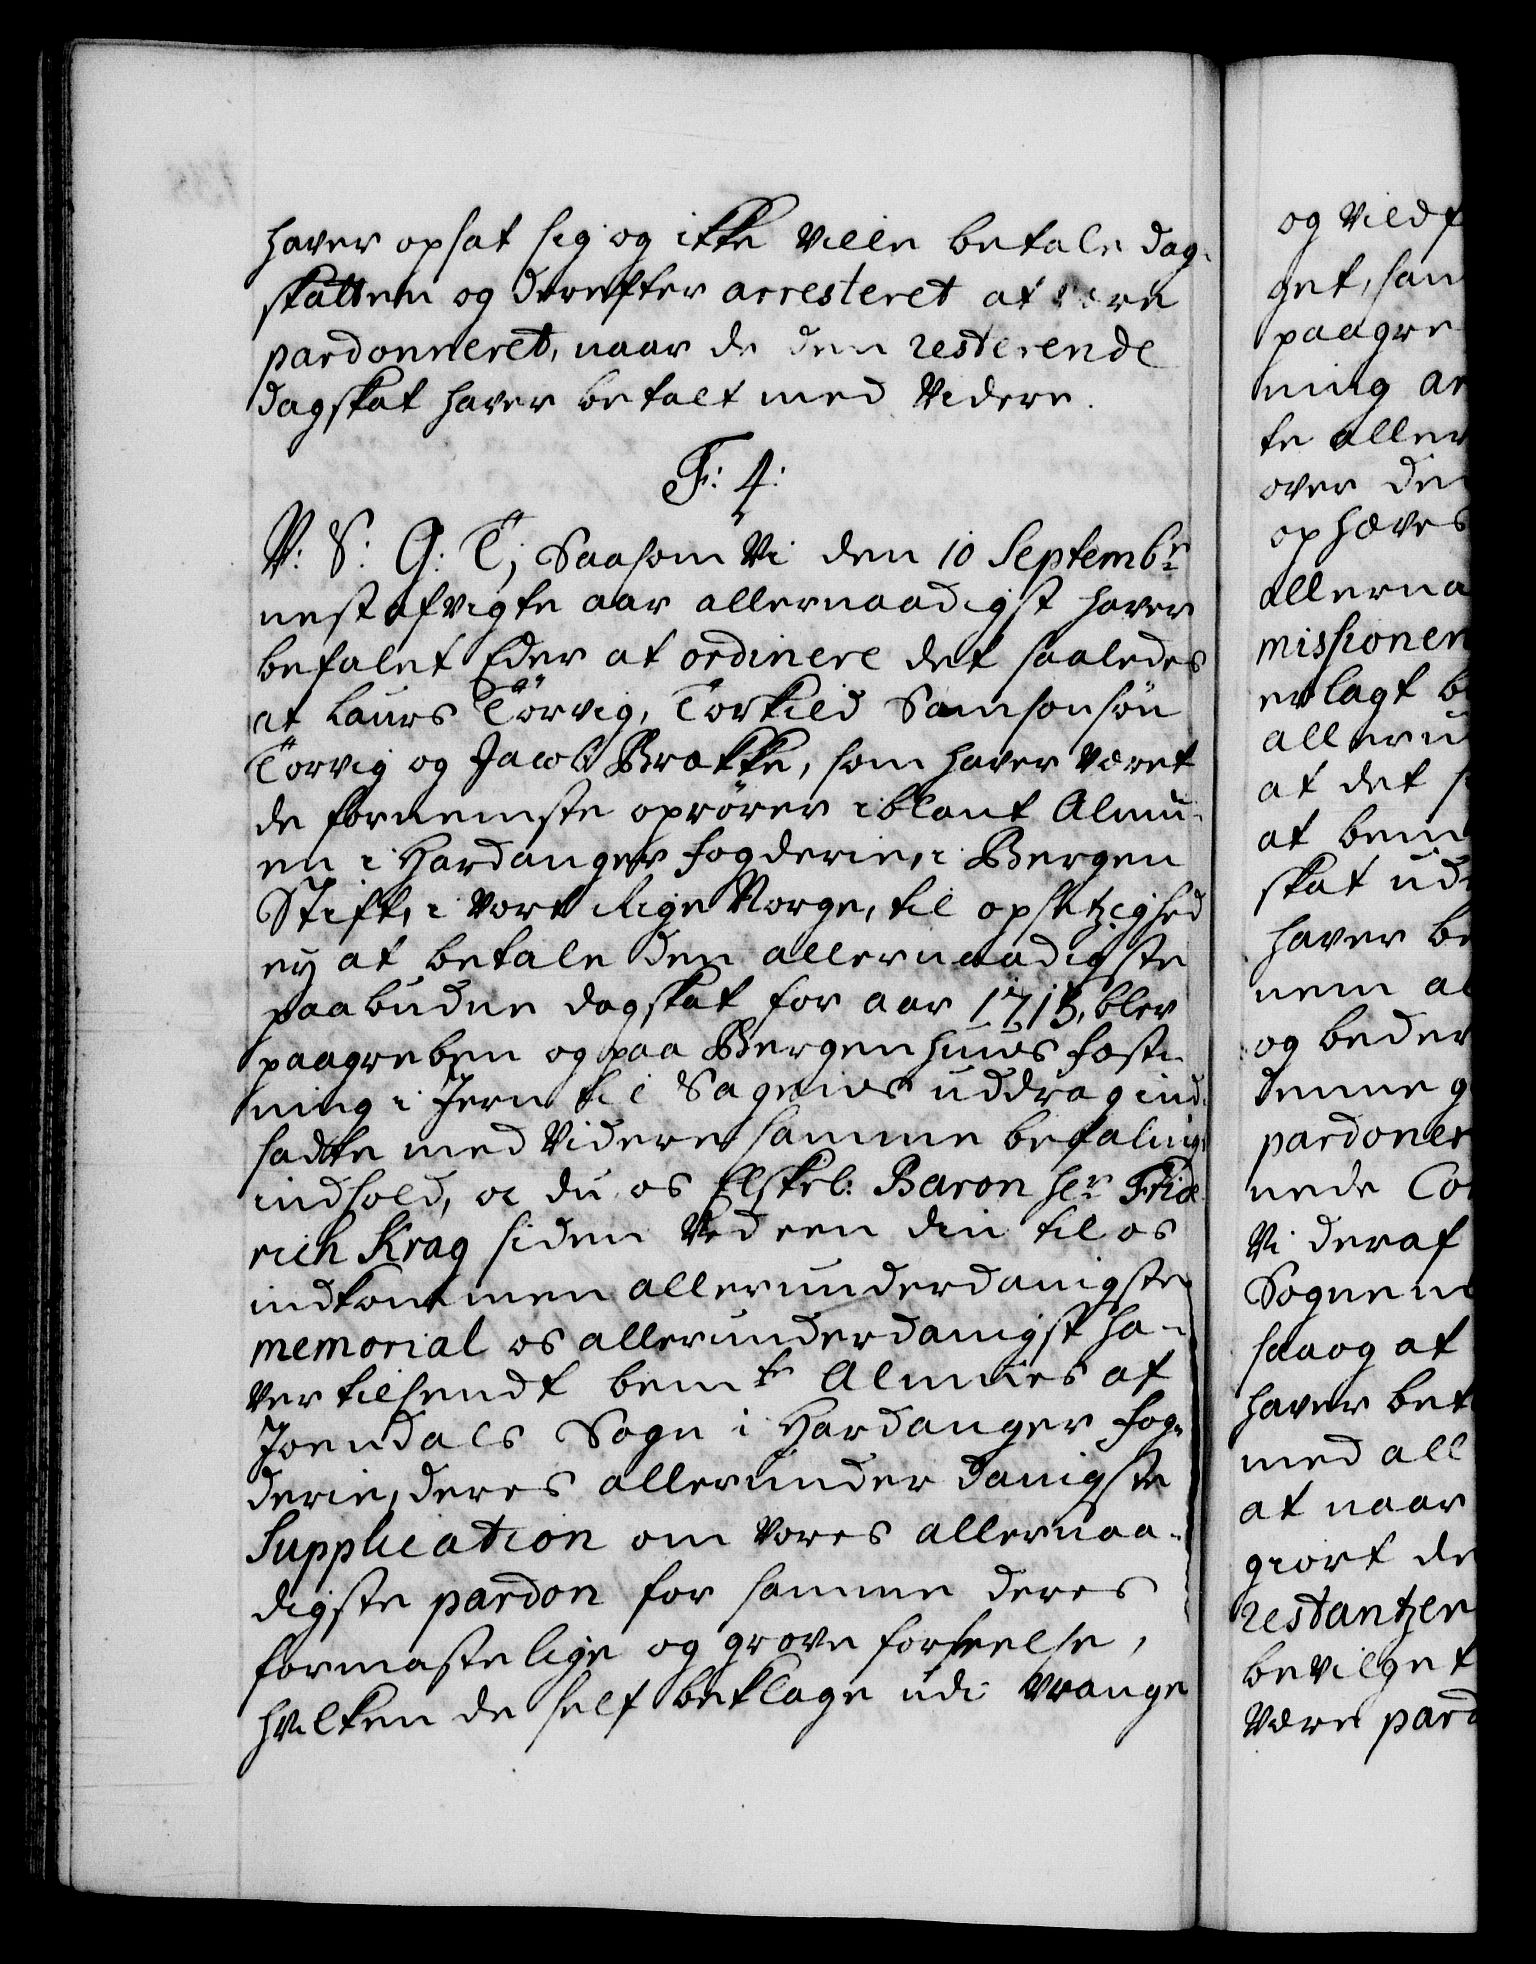 haver opsat sig og ikke ville betale dag-
skatten og derefter arresteret at være
pardonneret, naar de den resterende
dagskat haver betalt med Videre.
F: 4:
V: S: G: T; Saasom Vi den 10 Septembr
nest afvigte aar allernaadigst haver
befalet Eder at ordinere det saaledes
at Laurs Törvig, Torkild Samsonsøn
Torvig og Jacob Brakke, som haver Været
de fornemste oprører iblant Almu-
en i Hardanger fogderie, i Bergen
Stift, i Vort Rige Norge, til opsetzighed
ey at betale den allernaadigste
paabudne dagskat for aar 1713, blev
paagreben og paa Bergenhuus fæst-
ning i Jern til Sagens uddrag ind-
satte med Videre samme befalings
indhold, oc du os Elskel: Baron hr Frid-
rich Krag siden Ved een din til os
indkommen allerunderdanigste
memorial os allerunderdanigst ha-
ver tilsendt bemte Almues af
Joendals Sogn i Hardanger fog-
derie, deres allerunderdanigste
Supplication om Vores allernaa-
digste pardon for samme deres
formastelige og grove forseelse,
hvilken de self beklage udi Vrange
og Vildf
get, sam
paagre
ning ar
te aller
over de
ophæves
allerna
missionen
erlagt b
alleru
at det s
at bem
skat ud
haver be
nem al
og beder
denne g
pardoner
nede Co
Vi deraf
Sognem
saa og at
haver bet
med all
at naar
giort de
restantzer
bevilget
Være pard